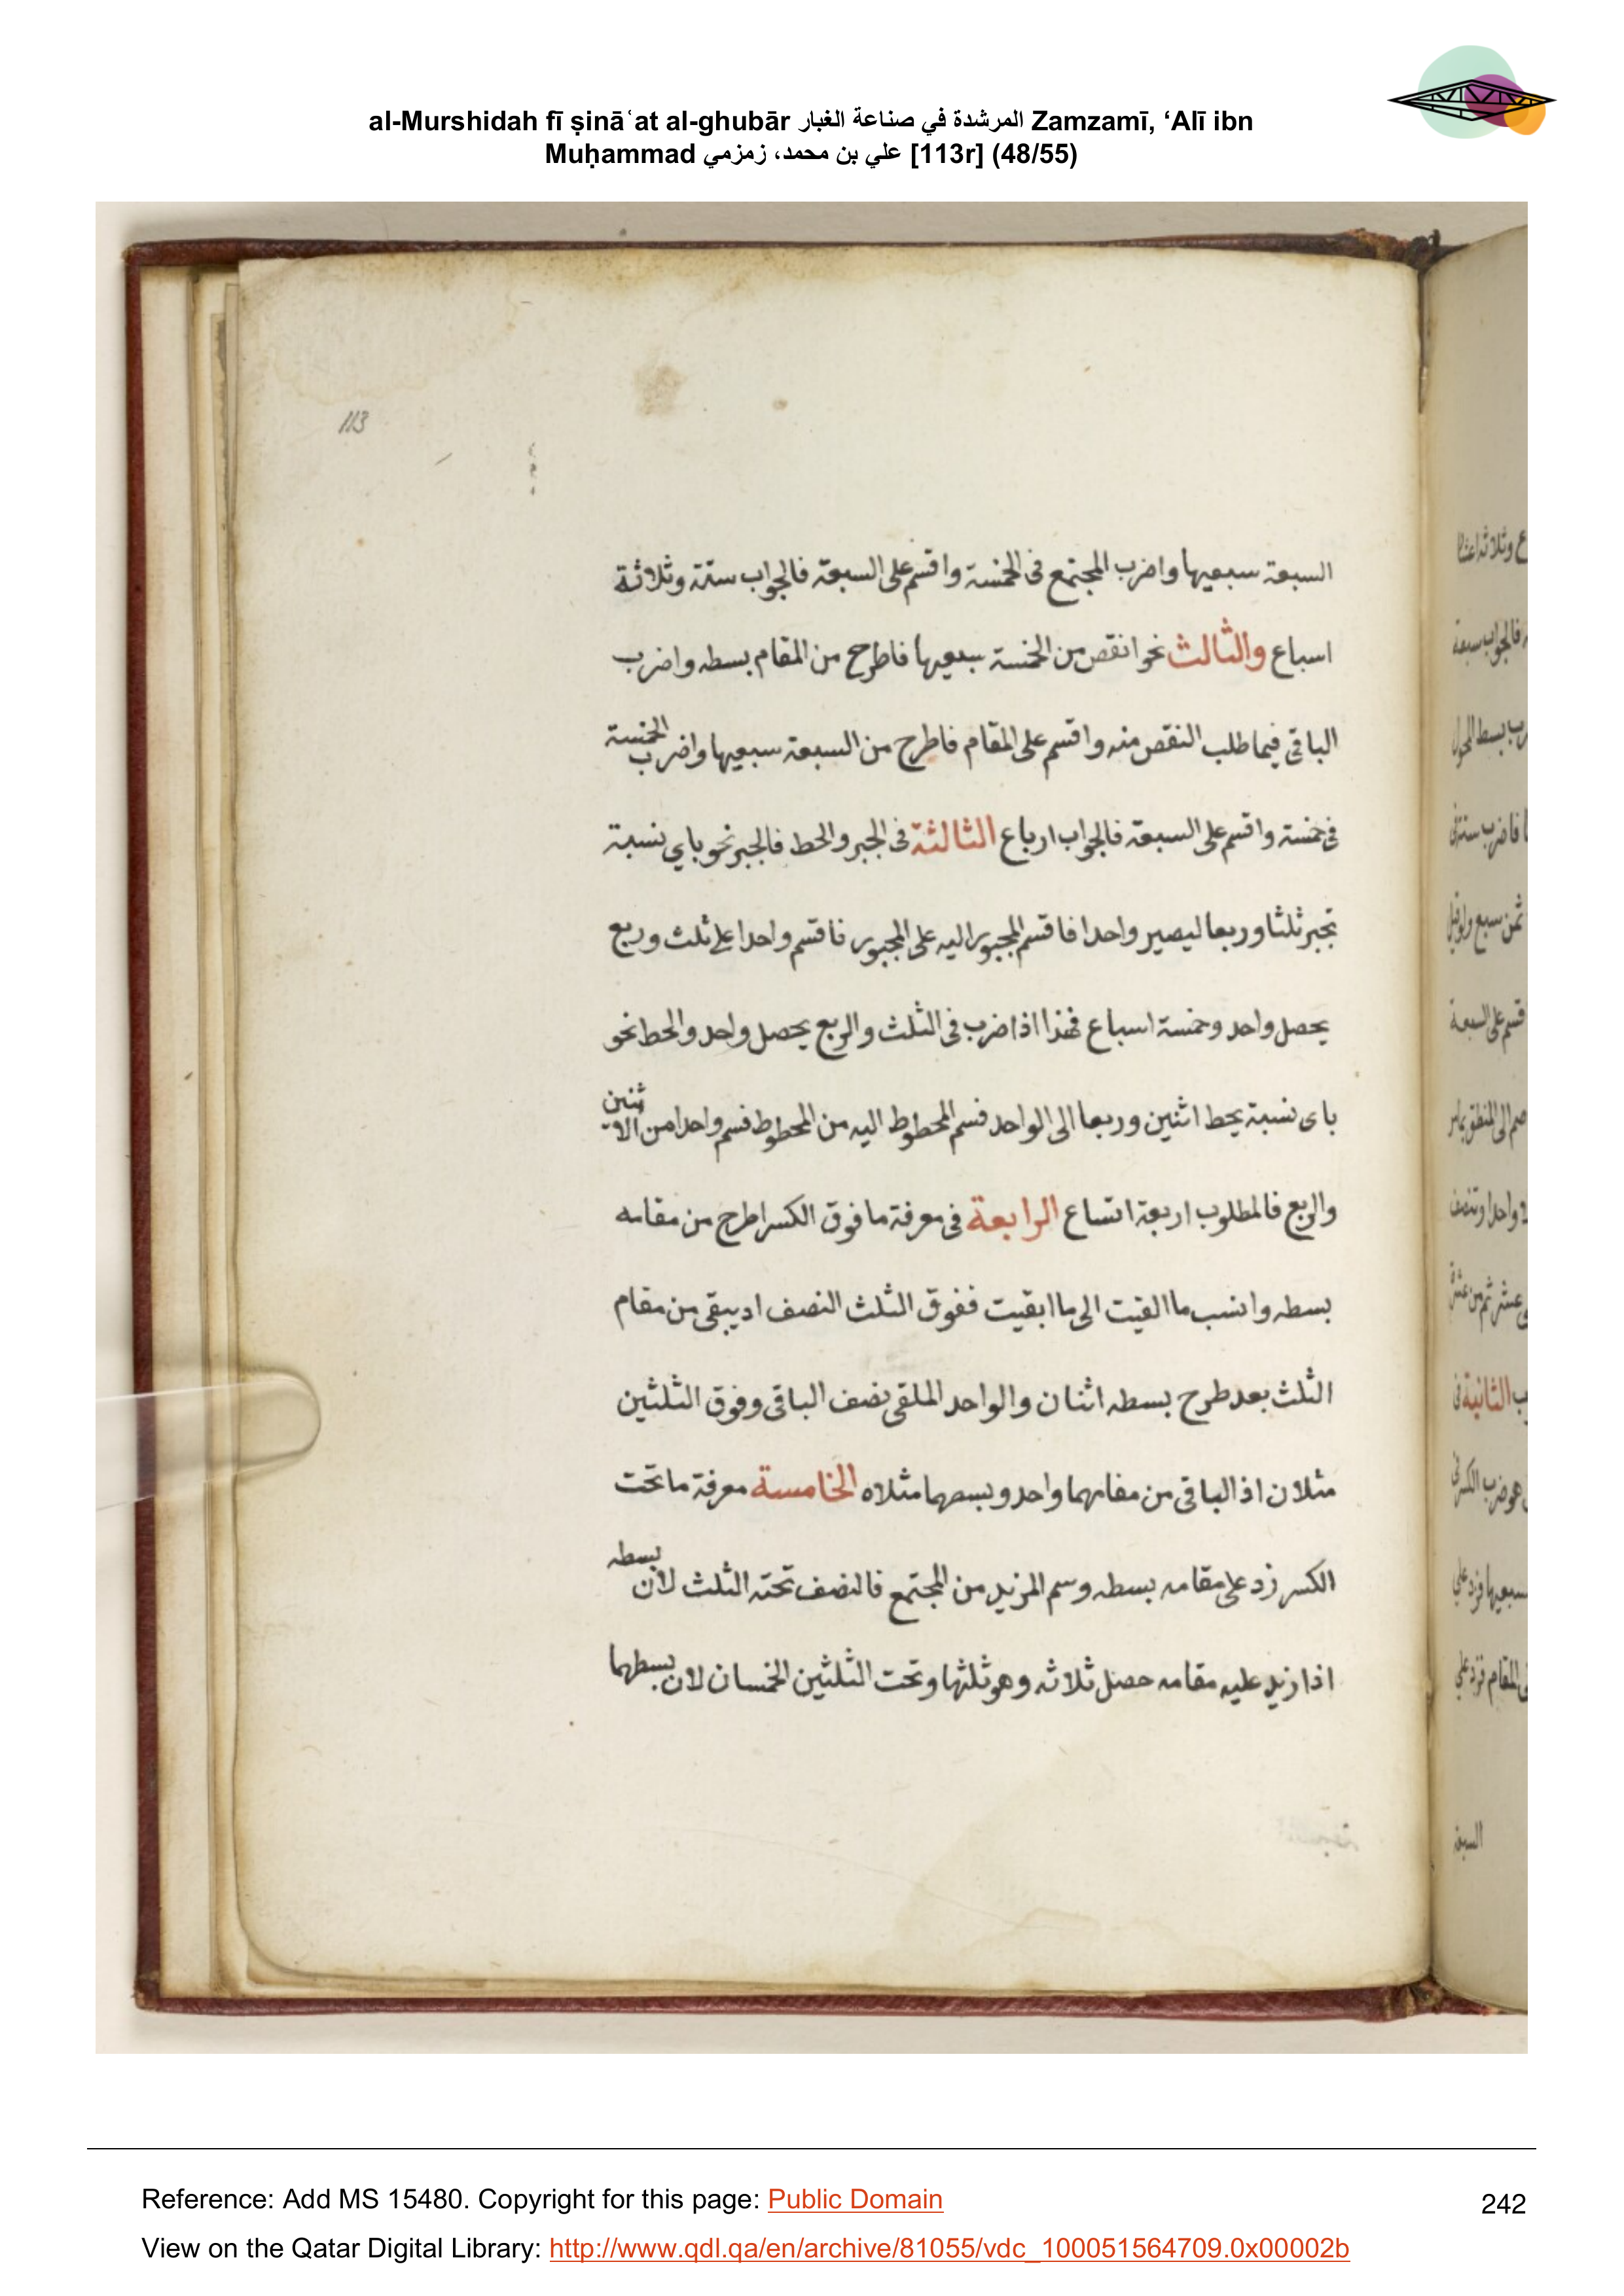 al-Murshidah fī ṣināʿat al-ghubār المرشدة في صناعة الغبار Zamzamī, ‘Alī ibn
Muḥammad علي بن محمد، زمزمي [113r] (48/55)
113
السبعة سبعيها واضرب المجتمع فى الخمسة واقسم على السبعة فالجواب ستة وثلاثة
اسباع والثالث نحو انقص من الخمسة سبعيها فاطرح من المقام بسطه واضرب
الباقى فيما طلب النقص منه واقسم على المقام فاطرح من السبعة سبعيها واضرب الخمسة
فى خمسة واقسم على السبعة فالجواب ارباع الثالثة فى الجبر والحط فالجبر نحو باي نسبة
تجبر ثلثا وربعا ليصير واحدا فاقسم المجبور اليه على المجبور فاقسم واحدا على ثلث وربع
يحصل واحد وخمسة اسباع فهذا اذا ضرب فى الثلث والربع يحصل واحد والحط نحو
باى نسبة يحط اثنين وربعا الى الواحد فسم المحطوط اليه من المحطوط فسم واحدا من الاثنين
والربع فالمطلوب اربعة اتساع الرابعة فى معرفة ما فوق الكسر اطرح من مقامه
بسطه وانسب ما القيت الى ما ابقيت ففوق الثلث النصف اد يبقى من مقام
الثلث بعد طرح بسطه اثنان والواحد الملقى نصف الباقى وفوق الثلثين
مثلان اذ الباقى من مقامهما واحد وبسطهما مثلاه الخامسة معرفة ما تحت
الكسر زد على مقامه بسطه وسم المزيد من المجتمع فالنصف تحته الثلث لان بسطه
اذا زيد عليه مقامه حصل ثلاثه وهو ثلثها وتحت الثلثين الخمسان لان بسطهما
السبعة
Reference: Add MS 15480. Copyright for this page: Public Domain
View on the Qatar Digital Library: http://www.qdl.qa/en/archive/81055/vdc_100051564709.0x00002b
242